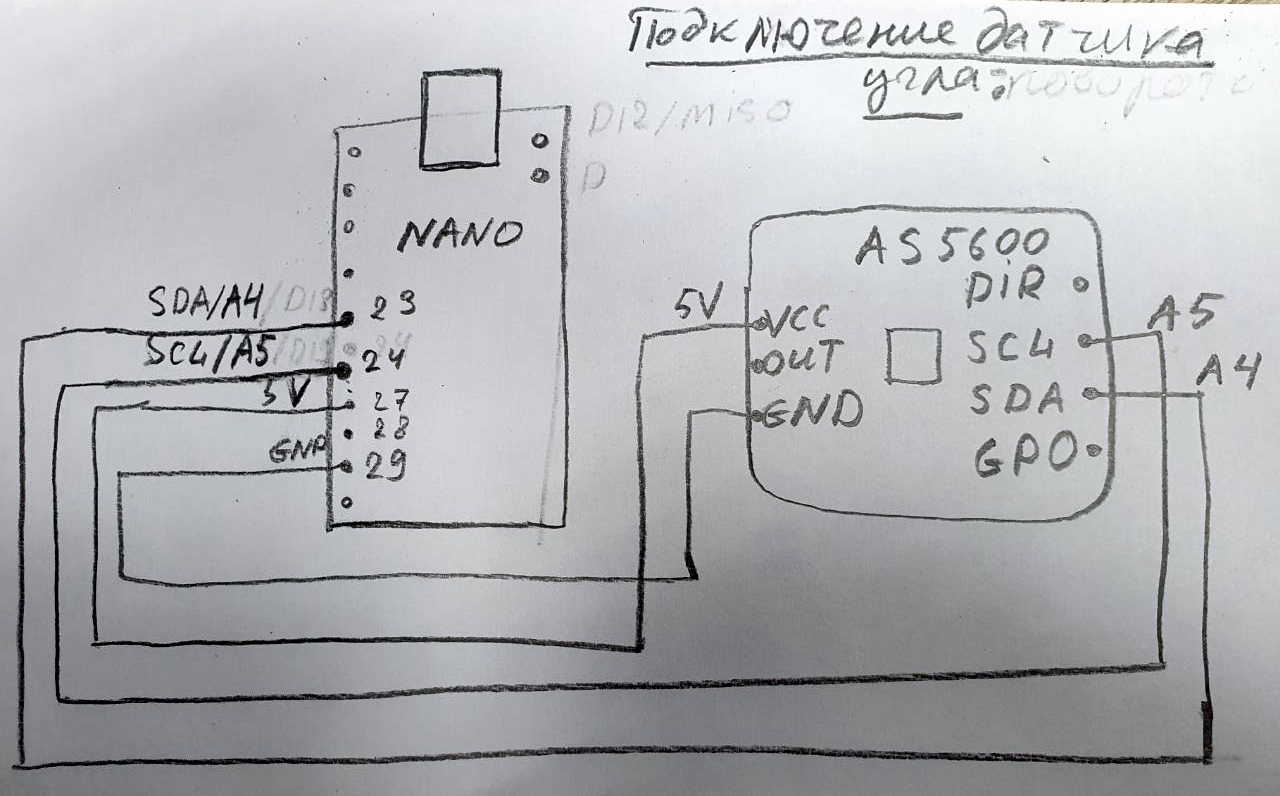 Подключение датчика
угла: поворота
D12/MISO
D
NANO
SDA/A4/D18
23
SCL/A5/D19
24
5V
27
28
GND
29
AS5600
DIR
5V
VCC
OUT
GND
SCL
SDA
GPO
A5
A4